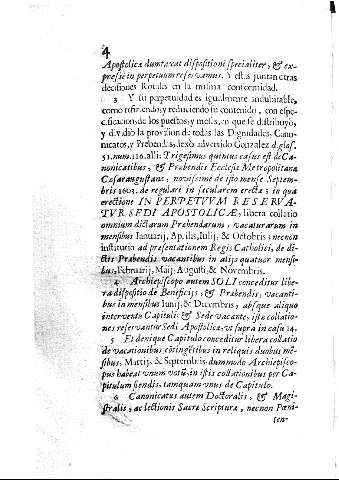 4
Apostolicæ dumtaxat dispositioni specialiter, & ex-
pressè in perpetuum reservamus. Y estas juntan otras
decisiones Rotales en la misma conformidad.
3 Y su perpetuidad es igualmente indubitable,
como refiriendo, y reduciendo su contenido, con espe-
cificacion de los puestos, y meses, en que se distribuyò,
y dividiò la provision de todas las Dignidades, Cano-
nicatos, y Prebendas, dexò advertido Gonzalez d. glos.
51. num. 126. alli: Trigesimus quintus casus est de Ca-
nonicatibus, & Prebendis Ecclesiæ Metropolitanæ
Cæsaraugustanæ, novissimè de isto mense Septem-
bris 1603. de regulari in sæcularem erectæ; in qua
erectione IN PERPETVVM RESERVA-
TVR SEDI APOSTOLICÆ, libera collatio
omnium dictarum Prebendarum, vacaturarum in
mensibus Ianuarij, Aprilis, Iulij, & Octobris; necnon
institutio ad presentationem Regis Catholici, de di-
ctis Prebendis vacantibus in alijs quatuor mensi-
bus, Februarij, Maij, Augusti, & Novembris.
4 Archiepiscopo autem SOLI conceditur libe-
ra dispositio de Beneficijs, & Prebendis, vacanti-
bus in mensibus Iunij, & Decembris, absque aliquo
interventu Capituli; & Sede vacante, istæ collatio-
nes reservantur Sedi Apostolicæ, vt supra in casu 14.
Et denique Capitulo conceditur libera collatio
de vacationibus cõtingẽtibus in reliquis duobus mẽ-
sibus, Martij, & Septembris, dummodo Archiepisco-
pus habeat vnum votũ, in istis collationibus per Ca-
pitulum fiendis, tamquam vnus de Capitulo.
5 Canonicatus autem Doctoralis, & Magi-
stralis, ac lectionis Sacræ Scripturæ, necnon Pœni-
ten-